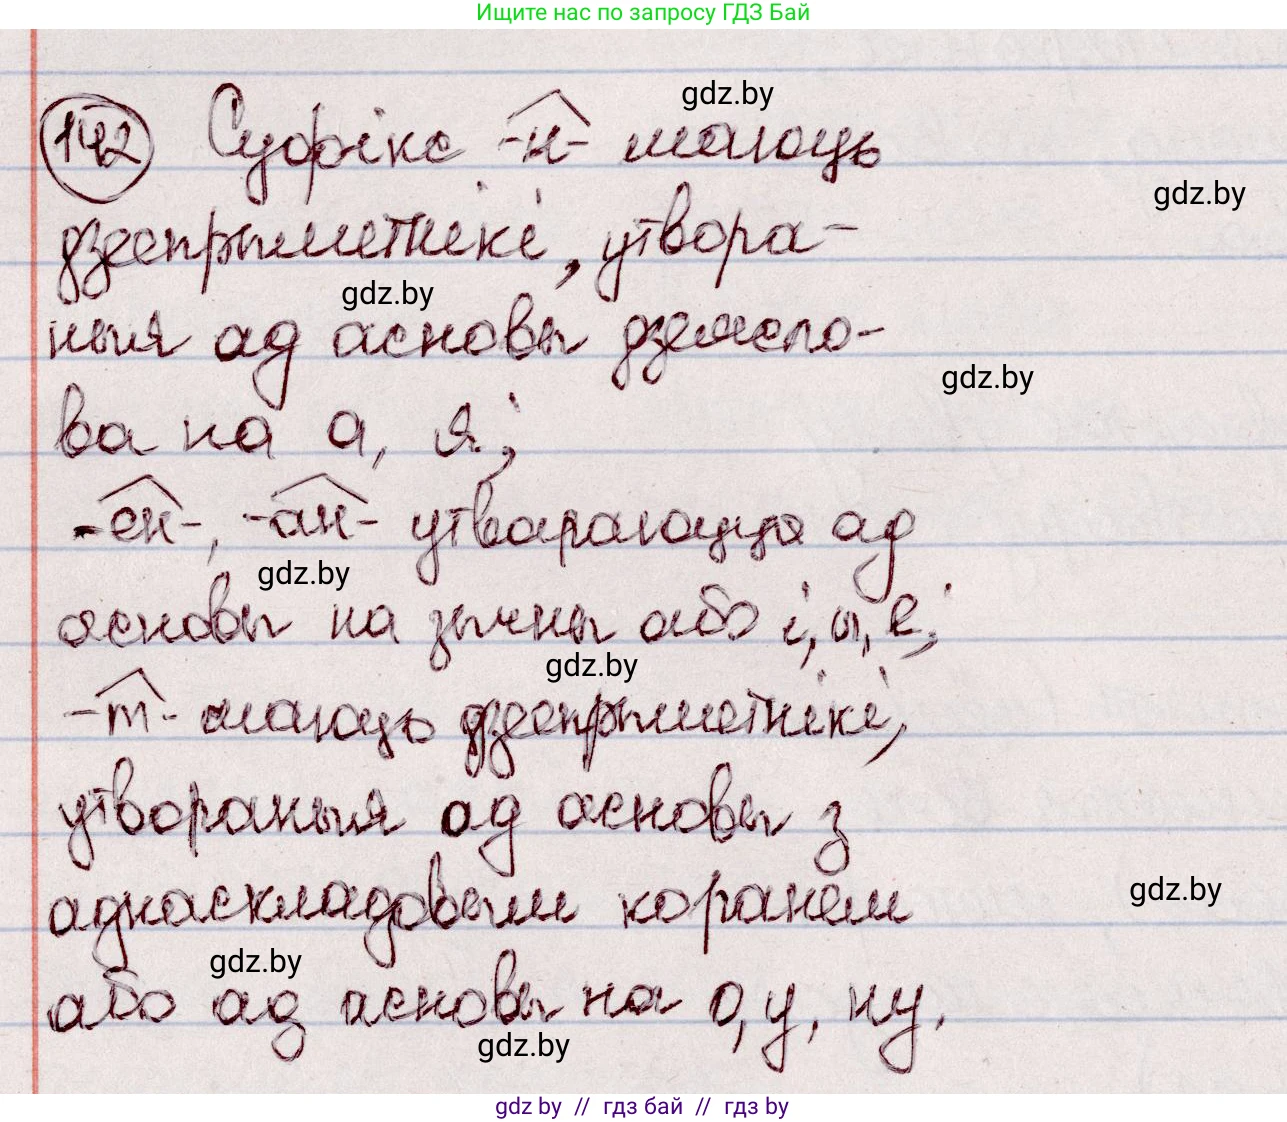 Ищите нас по запросу ГДЗ Бай
142 Суфікс -н- маюць
gdz.by
gdz.by
дзеепрыметнікі, утвора-
gdz.by
ныя ад асновы дзеясло-
gdz.by
ва на а, я;
-ен-, -ан- утвараюцца ад
gdz.by
асновы на зычны або і, ы, е;
gdz.by
-т- маюць дзеепрыметнікі,
утвораныя ад асновы з
аднаскладовым коранем
gdz.by
gdz.by
або ад асновы на о, у, ну.
gdz.by
gdz by // гдз бай // гдз by